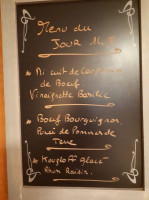 Menu du
JOUR
Mi cuit de
de Boeuf
Vinaigrette Basilic
Boeuf Bourguignon
Purée de Pommes de
Terre
Kouglof glacé
Rhum Raisin.